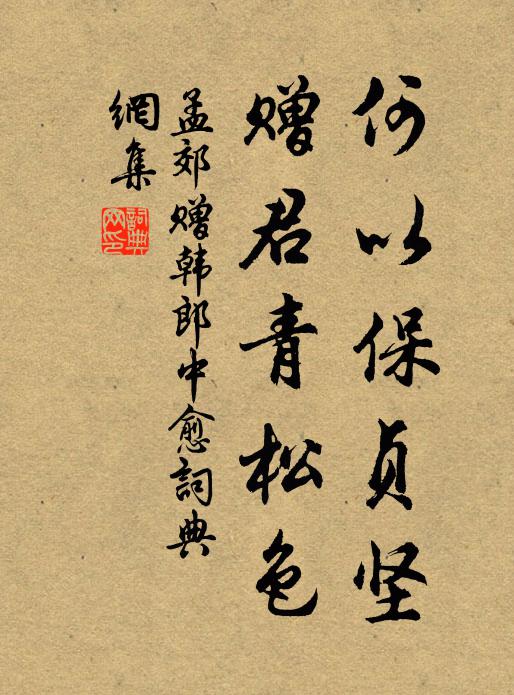 何以保贞坚
赠君青松色
孟郊赠韩郎中愈詞典
網集
詞典
网印